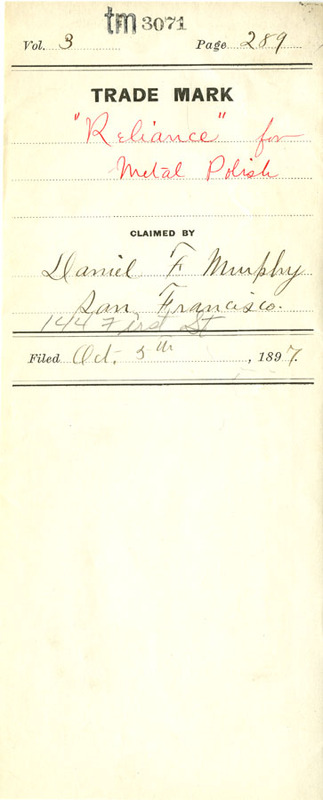 tm 3071
Vol. 3 Page 289
TRADE MARK
"Reliance" for
Metal Polish
CLAIMED BY
Daniel F Murphy
San Francisco.
144 First St
Filed Oct. 5th, 1897.